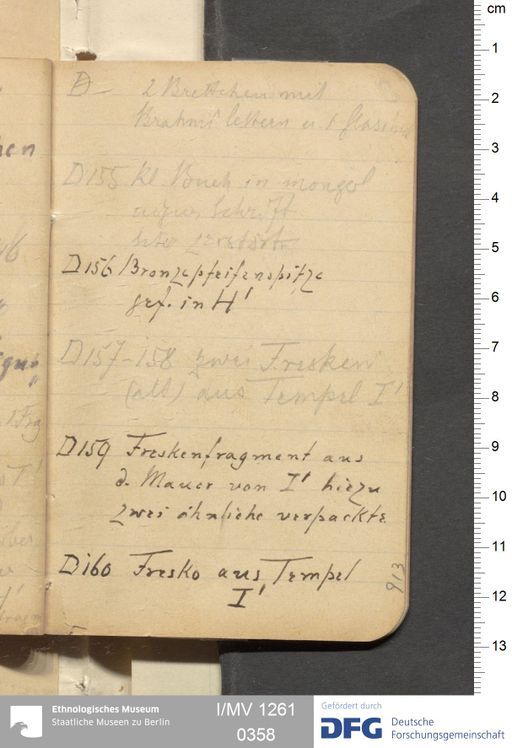 D 2 Brettchen mit
Brahmi lettern u. 1
D155 kl. Buch in mongol
uigur. Schrift
sehr zerstört
D156 Bronzepfeifenspitze
gef. in H'
D157-158 zwei Fresken
(alt) aus Tempel I'
D159 Freskenfragment aus
d. Mauer von I' hiezu
zwei ähnliche verpackte
D160 Fresko aus Tempel
I'
913
cm
1
2
3
4
5
6
7
8
9
10
11
12
13
Ethnologisches Museum
Staatliche Museen zu Berlin
I/MV 1261
0358
Gefördert durch
DFG Deutsche
Forschungsgemeinschaft